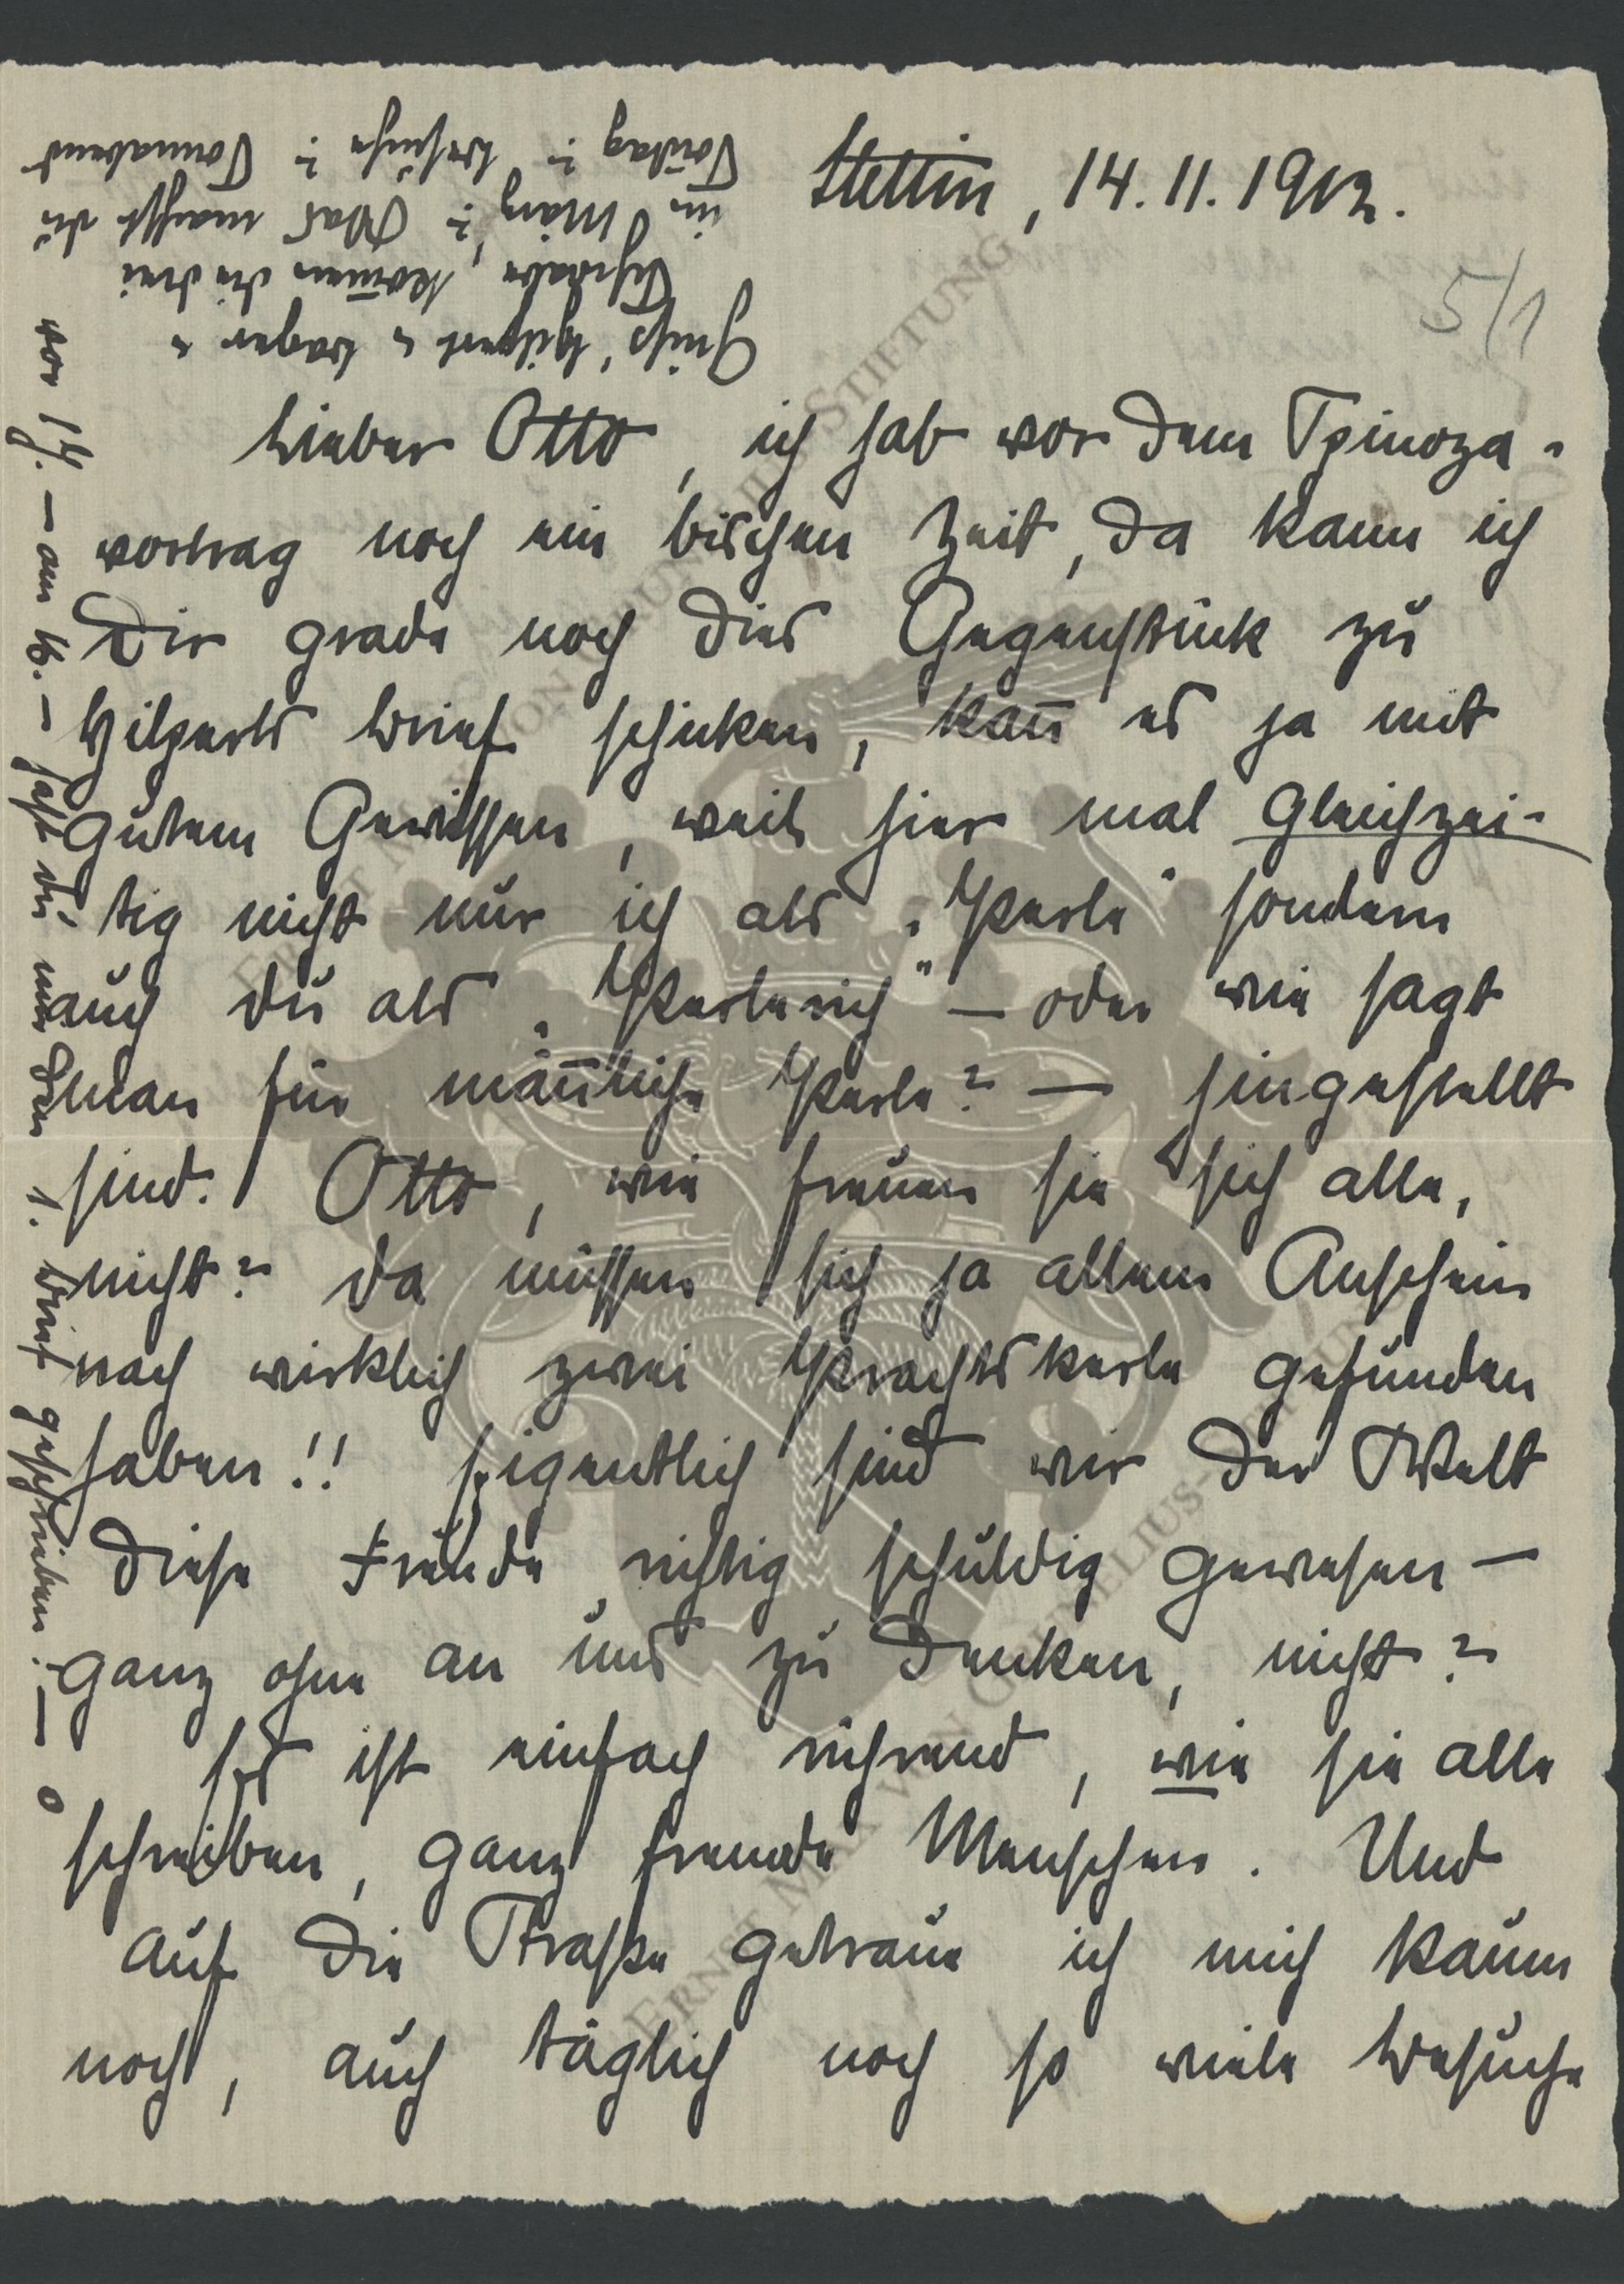 Stettin, 14.11.1912.
5/1
Lieber Otto, ich hab vor dem Spinoza-
vortrag noch ein bischen Zeit, da kann ich
Dir grade noch dies Gegenstück zu
Hilperts Brief schicken, kan̄ es ja mit
gutem Gewissen, weil hier mal gleichzei-
tig nicht nur ich als „Perle" sondern
auch du als „Perlerich" – oder wie sagt
man für män̄liche Perle? – hingestellt
sind. Otto, wie freuen sie sich alle,
nicht? Da müssen sich ja allem Anschein
nach wirklich zwei Prachtskerle gefunden
haben!! Eigentlich sind wir der Welt
diese Freude richtig schuldig gewesen –
ganz ohne an uns zu denken, nicht?
Es ist einfach rührend, wie sie alle
schreiben, ganz fremde Menschen. Und
auf die Straße getraue ich mich kaum
noch, auch täglich noch so viele Besuche
Grüß' Hilpert u Wager u
Schwabe, kom̄en die drei
im März? Was machst du
Son̄tag? Besuche? Sonnabend
vor 1 J. – am 16. – hast du mir den 1. Brief geschrieben. – o
ERNST MAX VON GRUNELIUS-STIFTUNG
ERNST MAX VON GRUNELIUS-STIFTUNG